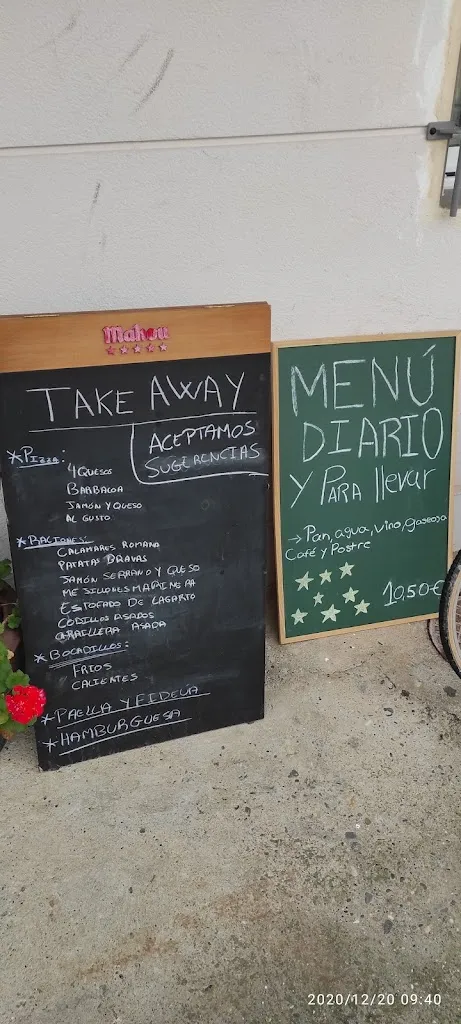 Mahou
TAKE AWAY
ACEPTAMOS
SUGERENCIAS
*PIZZA:
4 QUESOS
BARBACOA
JAMON Y QUESO
AL GUSTO
*RACIONES:
CALAMARES ROMANA
PATATAS BRAVAS
JAMÓN SERRANO Y QUESO
MEJILLONES MARINERA
ESTOFADO DE LAGARTO
CODILLOS ASADOS
CARRILLERA ASADA
*BOCADILLOS:
FRIOS
CALIENTES
*PAELLA Y FIDEUA
*HAMBURGUESA
MENÚ
DIARIO
Y PARA llevar
→ Pan, agua, vino, gaseosa
Café y Postre
10,50€
2020/12/20 09:40